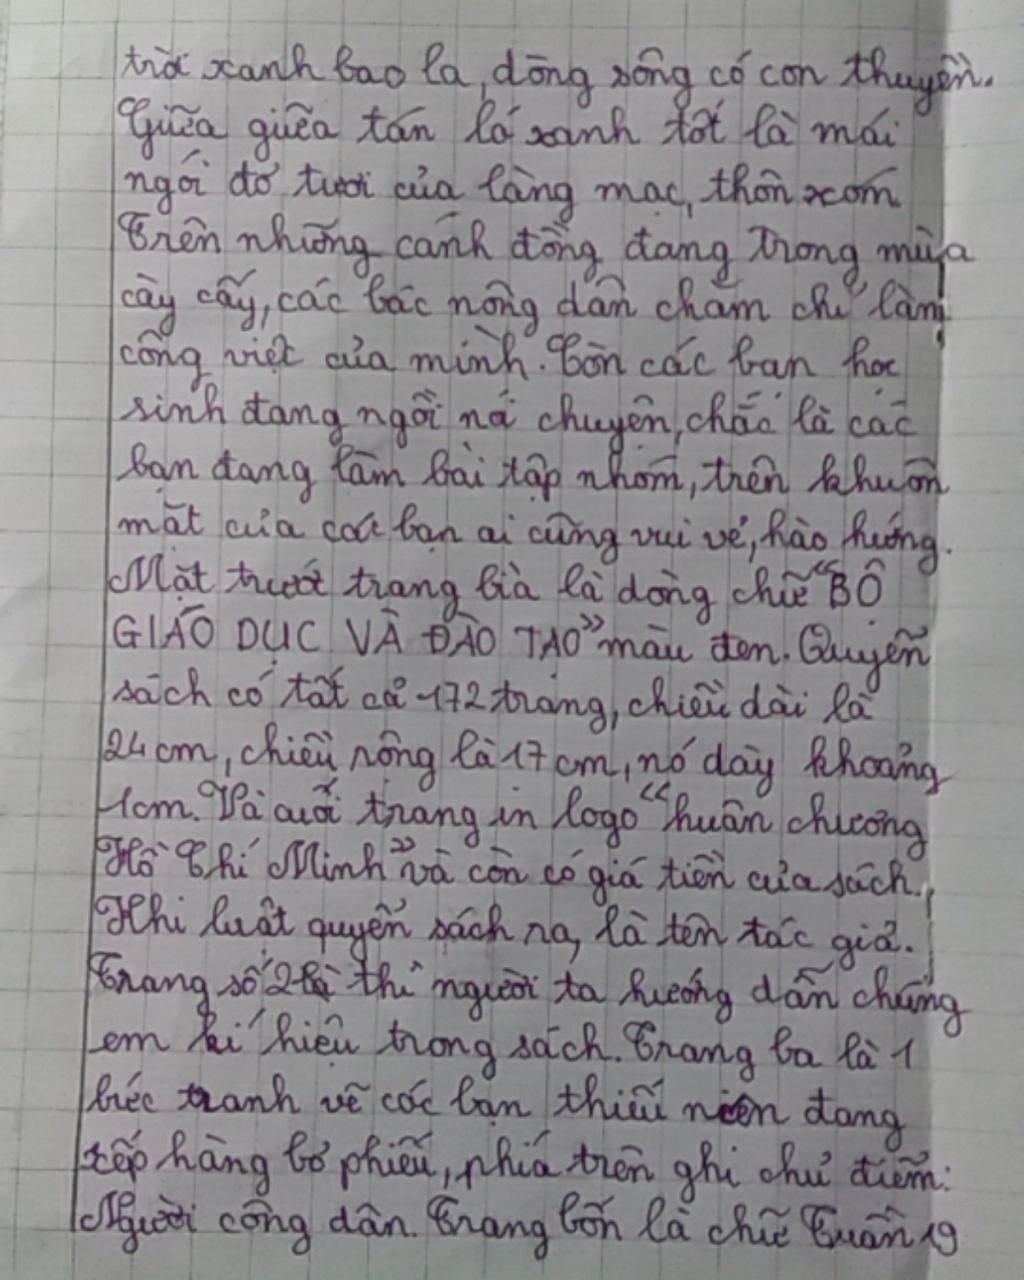 trời xanh bao la, dòng sông có con thuyền.
Giữa giữa tán lá xanh tốt là mái
ngói đỏ tươi của làng mạc, thôn xóm.
Trên những cánh đồng đang trong mùa
cày cấy, các bác nông dân chăm chỉ làm
công việc của mình. Còn các bạn học
sinh đang ngồi nói chuyện, chắc là các
bạn đang làm bài tập nhóm, trên khuôn
mặt của các bạn ai cũng vui vẻ, hào hứng.
Mặt trước trang bìa là dòng chữ "BỘ
GIÁO DỤC VÀ ĐÀO TẠO" màu đen. Quyển
sách có tất cả 172 trang, chiều dài là
24 cm, chiều rộng là 17 cm, nó dày khoảng
1cm. Và cuối trang in logo "huân chương
Hồ Chí Minh" và còn có giá tiền của sách.
Khi luật quyển sách ra, là tên tác giả.
Trang số 2 thì người ta hướng dẫn chúng
em kí hiệu trong sách. Trang ba là 1
bức tranh vẽ các bạn thiếu niên đang
xếp hàng bỏ phiếu, phía trên ghi chủ điểm:
Người công dân. Trang bốn là chữ Tuần 19